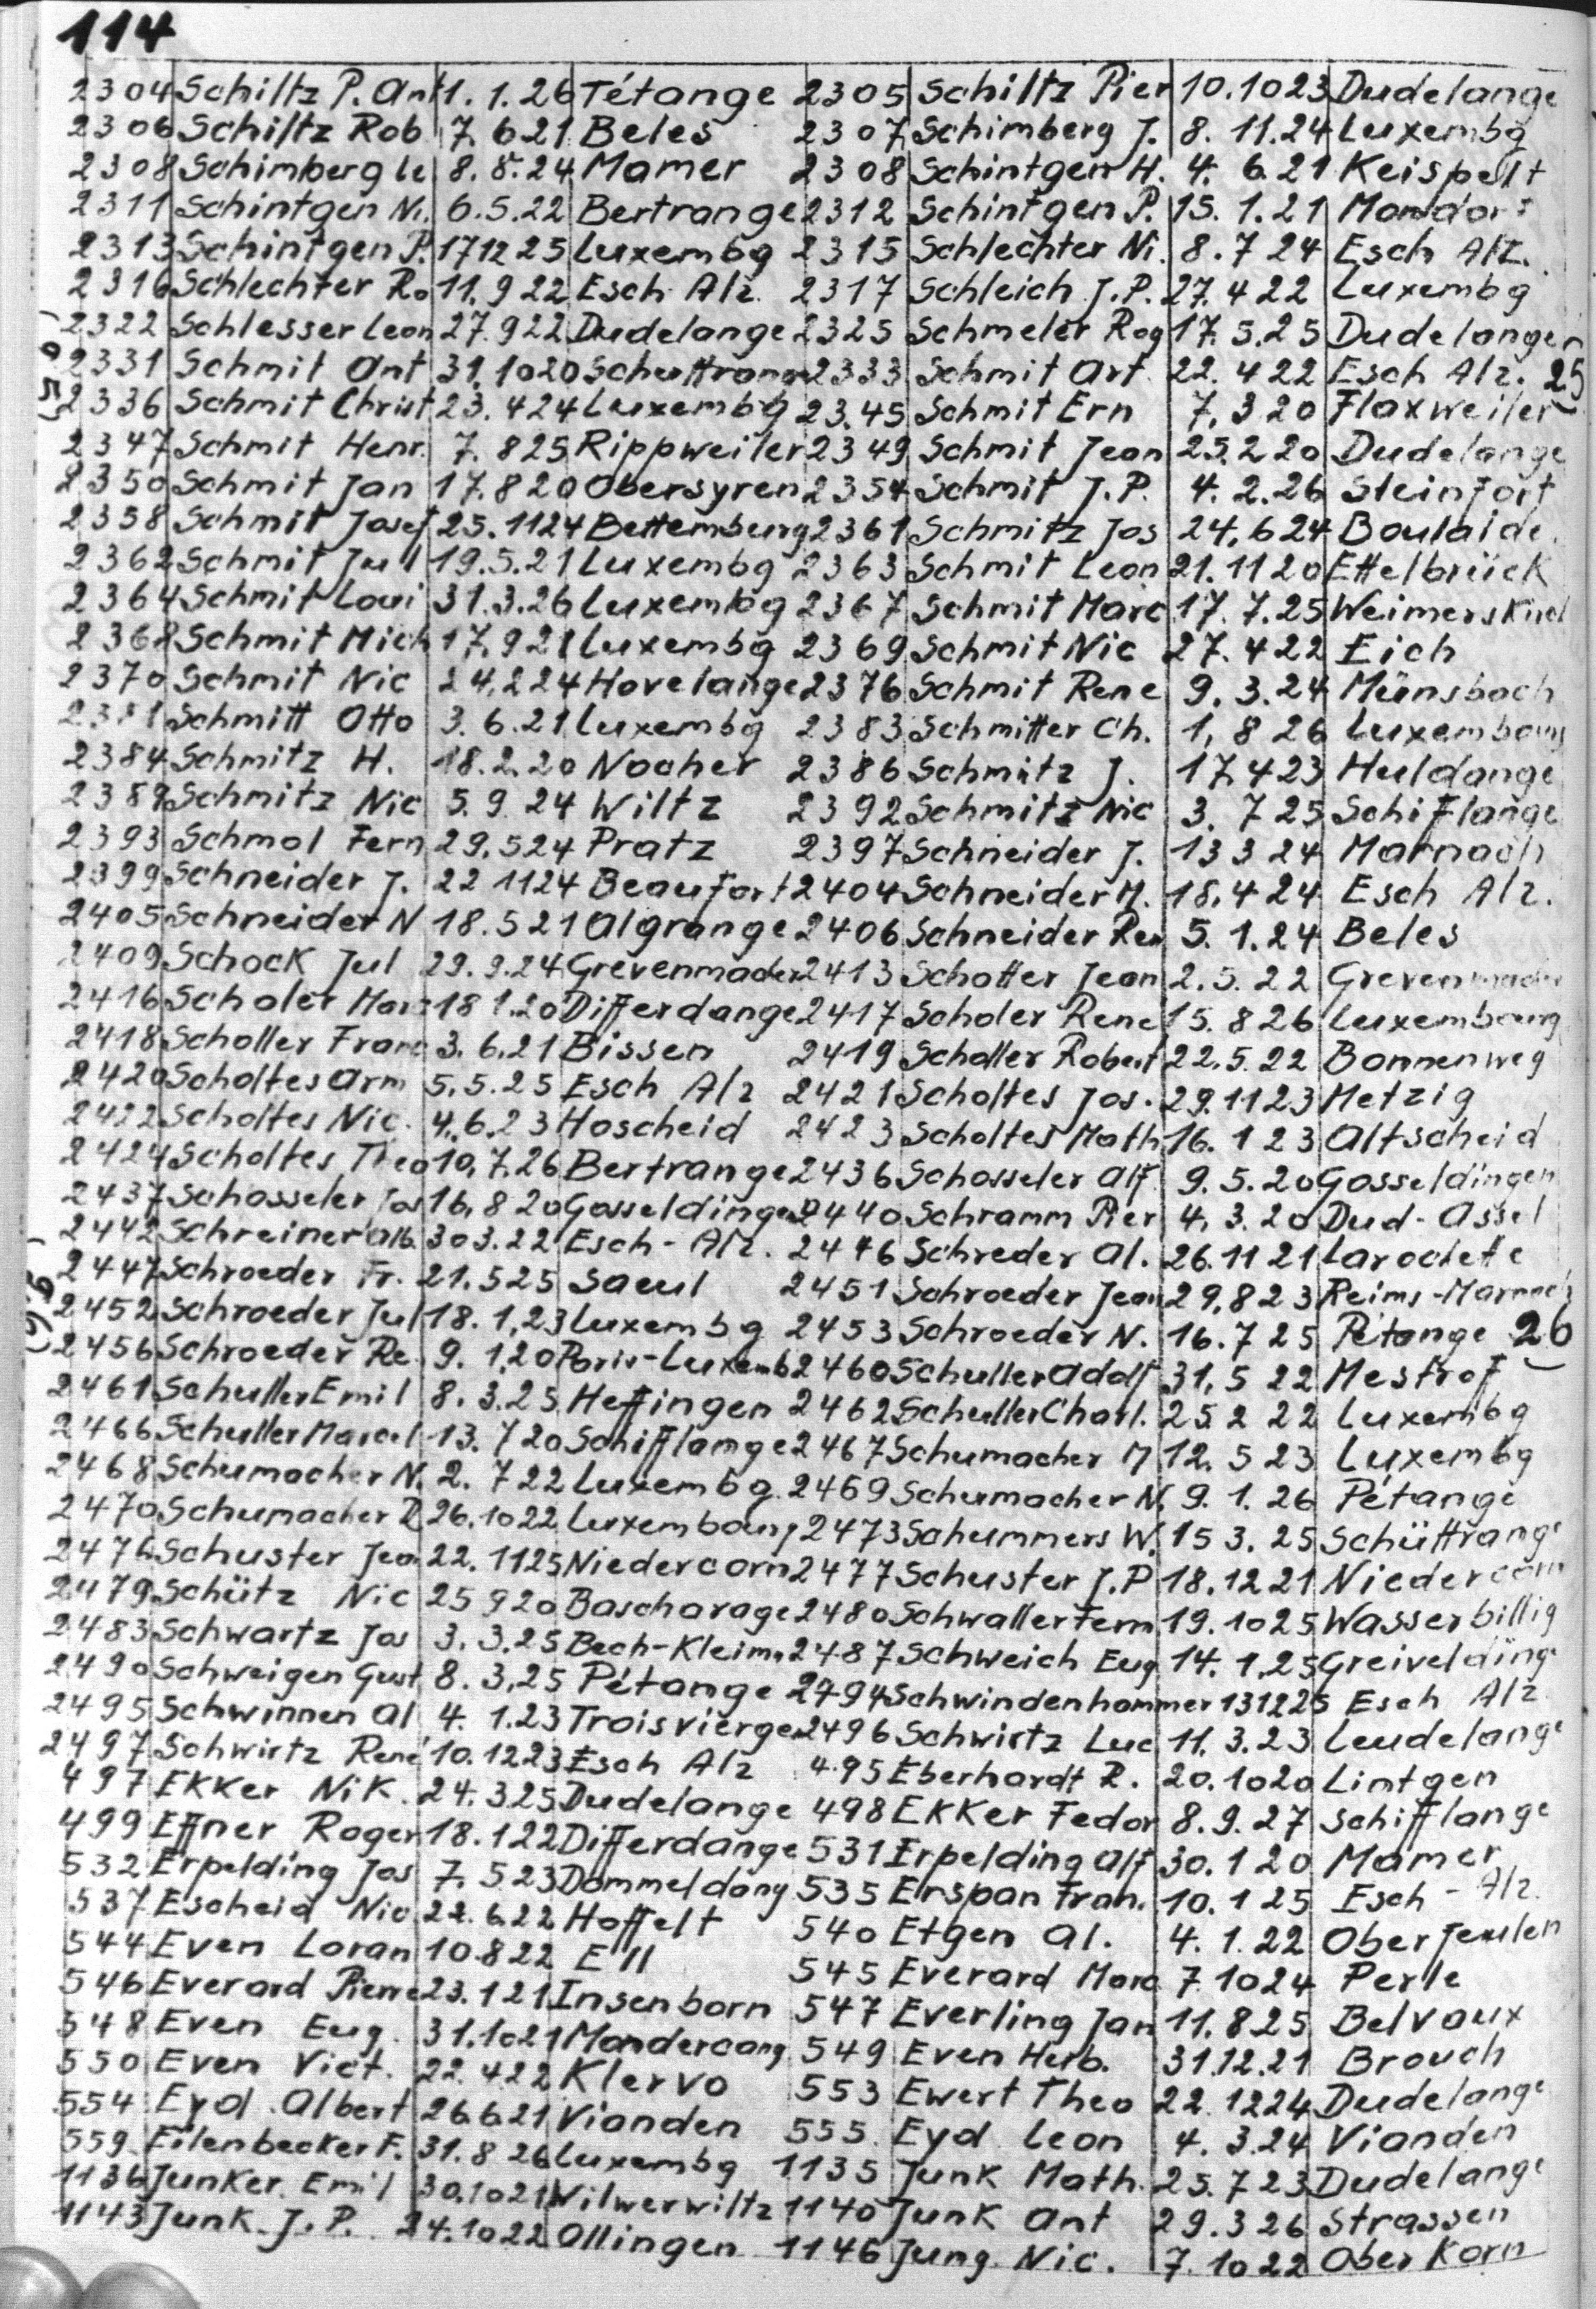 114
2304 Schiltz P. Ant 1. 1. 26 Tétange 2305 Schiltz Pier 10.10 23 Dudelange
2306 Schiltz Rob 7. 6 21 Beles 2307 Schimberg J. 8. 11.24 Luxembg
2308 Schimberg le 8. 8. 24 Mamer 2308 Schintgen H. 4. 6 21 Keispelt
2311 Schintgen Ni. 6.5.22 Bertrange 2312 Schintgen P. 15. 1. 21 Mondorf
2313 Schintgen P. 17 12 25 Luxembg 2315 Schlechter Ni. 8. 7 24 Esch Alz.
2316 Schlechter Ro 11. 9 22 Esch Alz. 2317 Schleich J.P. 27. 4 22 Luxembg
2322 Schlesser Leon 27. 9 22 Dudelange 2325 Schmeler Rog 17. 5. 25 Dudelange
2331 Schmit Ant 31. 10 20 Schuttrange 2333 Schmit Art 22. 4 22 Esch Alz. 25
2336 Schmit Christ 23. 4 24 Luxembg 23.45 Schmit Ern 7. 3 20 Flaxweiler
2347 Schmit Henr. 7. 8 25 Rippweiler 2349 Schmit Jean 25. 2 20 Dudelange
2350 Schmit Jan 17. 8 20 Obersyren 2354 Schmit J.P. 4. 2. 26 Steinfort
2358 Schmit Josef 25. 11 24 Bettemburg 2361 Schmitz Jos 24. 6 24 Boulaide
2362 Schmit Jul 19. 5. 21 Luxembg 2363 Schmit Leon 21. 11 20 Ettelbrück
2364 Schmit Loui 31. 3. 26 Luxembg 2367 Schmit Marc 17. 7. 25 Weimerskirch
2368 Schmit Mich 17. 9 21 Luxembg 2369 Schmit Nic 27. 4 22 Eich
2370 Schmit Nic 24. 2 24 Hovelange 2376 Schmit Rene 9. 3. 24 Münsbach
2381 Schmitt Otto 3. 6. 21 Luxembg 2383 Schmitter Ch. 1. 8 26 Luxembourg
2384 Schmitz H. 18. 2. 20 Nocher 2386 Schmitz J. 17. 4 23 Huldange
2389 Schmitz Nic 5. 9. 24 Wiltz 2392 Schmitz Nic 3. 7 25 Schifflange
2393 Schmol Fern 29. 5 24 Pratz 2397 Schneider J. 13 3 24 Marnach
2399 Schneider J. 22 11 24 Beaufort 2404 Schneider M. 18. 4 24 Esch Alz.
2405 Schneider N 18. 5 21 Algrange 2406 Schneider Ren 5. 1. 24 Beles
2409 Schock Jul 29. 9. 24 Grevenmacher 2413 Schotter Jean 2. 5. 22 Grevenmacher
2416 Scholer Marc 18 1. 20 Differdange 2417 Scholer Rene 15. 8 26 Luxembourg
2418 Scholler Franc 3. 6. 21 Bissen 2419 Scholler Robert 22. 5. 22 Bonnenweg
2420 Scholtes Arm 5. 5. 25 Esch Alz 2421 Scholtes Jos. 29. 11 23 Metzig
2422 Scholtes Nic. 4. 6. 23 Hoscheid 2423 Scholtes Math 16. 1 23 Altscheid
2424 Scholtes Theo 10. 7. 26 Bertrange 2436 Schosseler Alf 9. 5. 20 Gosseldingen
2437 Schosseler Jos 16. 8 20 Gosseldingen 2440 Schramm Pier 4. 3. 20 Dud-Assel
2442 Schreiner Alb. 30 3. 22 Esch-Alz. 2446 Schreder Al. 26. 11 21 Larochette
2447 Schroeder Fr. 21. 5 25 Saeul 2451 Schroeder Jean 29. 8 23 Reims-Marnach
2452 Schroeder Jul 18. 1. 23 Luxembg 2453 Schroeder N. 16. 7 25 Pétange 26
2456 Schroeder Re. 9. 1. 20 Paris-Luxemb 2460 Schuller Adolf 31. 5 22 Mestrof
2461 Schuller Emil 8. 3. 25 Heffingen 2462 Schuller Charl. 25 2 22 Luxembg
2466 Schuller Marcel 13. 7 20 Schifflange 2467 Schumacher M 12. 5 23 Luxembg
2468 Schumacher N. 2. 7 22 Luxembg. 2469 Schumacher N. 9. 1. 26 Pétange
2470 Schumacher R 26. 10 22 Luxembourg 2473 Schummers W. 15 3. 25 Schüttrange
2476 Schuster Jea 22. 11 25 Niedercorn 2477 Schuster J.P 18. 12 21 Niedercorn
2479 Schütz Nic 25 9 20 Bascharage 2480 Schwaller Fern 19. 10 25 Wasserbillig
2483 Schwartz Jos 3. 3. 25 Bech-Kleim. 2487 Schweich Eug 14. 1. 25 Greiveldinge
2490 Schweigen Gust 8. 3. 25 Pétange 2494 Schwindenhammer 13 12 25 Esch Alz
2495 Schwinnen Al 4. 1. 23 Troisvierges 2496 Schwirtz Luc 11. 3. 23 Leudelange
2497 Schwirtz René 10. 12 23 Esch Alz 495 Eberhardt R. 20. 10 20 Lintgen
497 Ekker Nik. 24. 3 25 Dudelange 498 Ekker Fedor 8. 9. 27 Schifflange
499 Effner Roger 18. 1 22 Differdange 531 Erpelding Alf 30. 1 20 Mamer
532 Erpelding Jos 7. 5 23 Dommeldang 535 Erspan Fran. 10. 1 25 Esch-Alz.
537 Escheid Nic 22. 6. 22 Hoffelt 540 Etgen Al. 4. 1. 22 Oberfeulen
544 Even Loran 10. 8 22 Ell 545 Everard Marc 7 10 24 Perle
546 Everard Pierre 23. 1 21 Insenborn 547 Everling Jan 11. 8 25 Belvaux
548 Even Eug. 31. 10 21 Mondercang 549 Even Herb. 31. 12. 21 Brouch
550 Even Vict. 22. 4 22 Klervo 553 Ewert Theo 22. 12 24 Dudelange
554 Eyd Albert 26. 6. 21 Vianden 555 Eyd Leon 4. 3. 24 Vianden
559 Eilenbecker F. 31. 8 26 Luxembg 1135 Junk Math. 25. 7 23 Dudelange
1136 Junker Emil 30. 10 21 Wilwerwiltz 1140 Junk Ant 29. 3 26 Strassen
1143 Junk J.P. 24. 10 22 Ollingen 1146 Jung Nic. 7. 10 22 Oberkorn